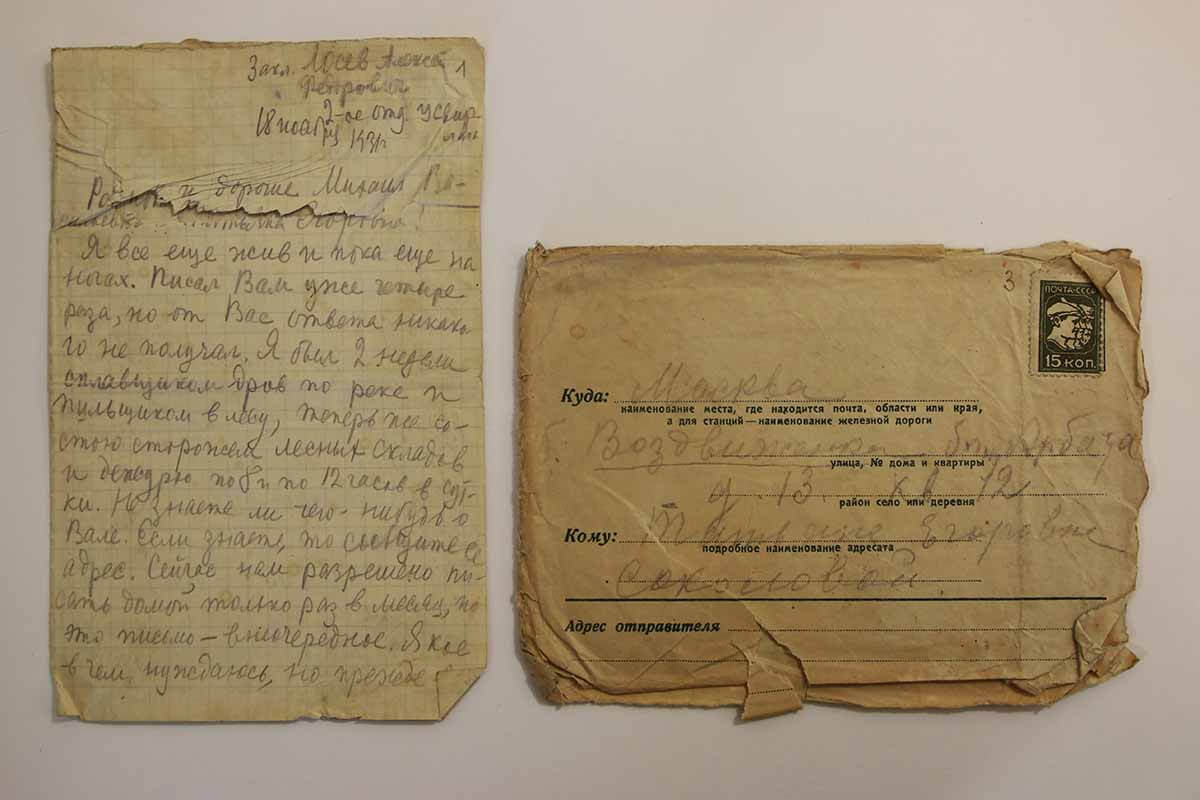 Закл. Лосев Алексей
1
18 ноября
2-ое отд. Усвир
лага
Родные и дорогие Михаил Ва-
Егоровна!
Я все еще жив и пока еще на
ногах. Писал Вам уже четыре
раза, но от Вас ответа никако
го не получал. Я был 2 недели
сплавщиком дров по реке и
пильщиком в лесу, теперь же со-
стою сторожем лесных складов
и дежурю по 12 часов в сут-
ки. Не знаете ли чего-нибудь о
Вале. Если знаете, то сообщите ее
адрес. Сейчас нам разрешено пи-
сать домой только раз в месяц, но
это письмо – внеочередное. Я кое
в чем нуждаюсь, но прежде
3
ПОЧТА-СССР
15 КОП.
Куда: Москва
наименование места, где находится почта, области или края,
а для станций—наименование железной дороги
Воздвиженка Арбата
улица, № дома и квартиры
д. 13. кв 12
район село или деревня
Кому: Татьяне Егоровне
подробное наименование адресата
Соколовой
Адрес отправителя